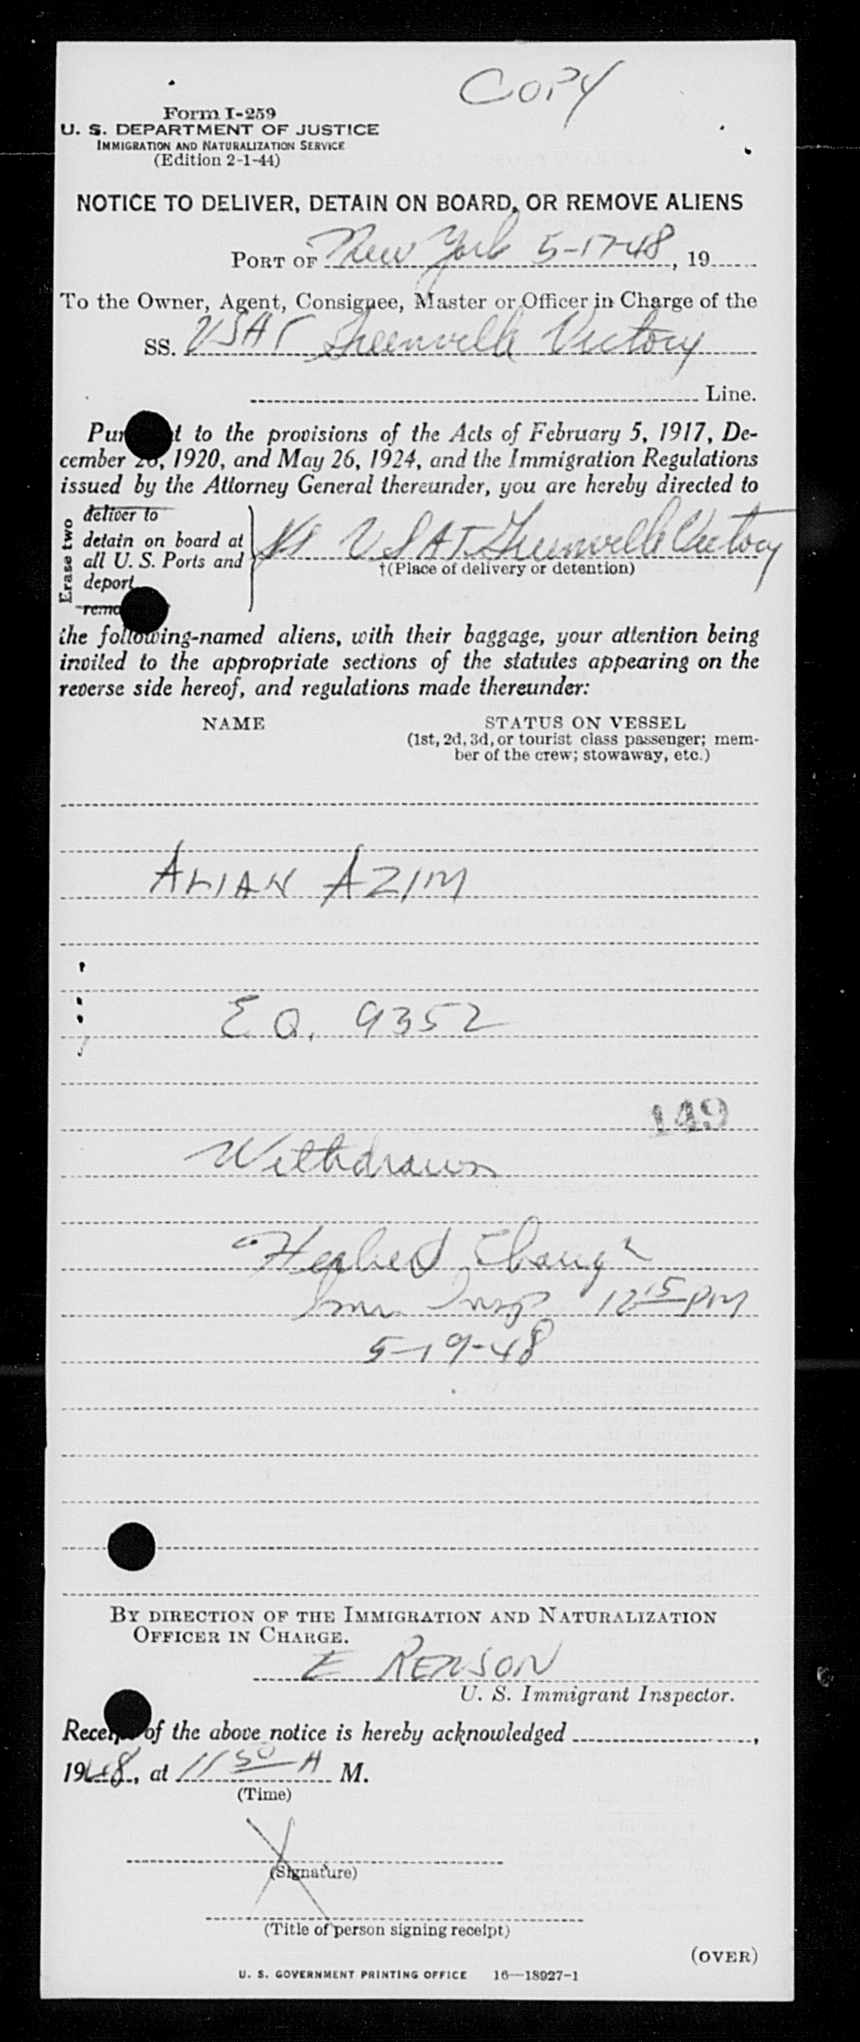 COPY
Form I-259
U. S. DEPARTMENT OF JUSTICE
IMMIGRATION AND NATURALIZATION SERVICE
(Edition 2-1-44)
NOTICE TO DELIVER, DETAIN ON BOARD, OR REMOVE ALIENS
PORT OF New York 5-17-48, 19
To the Owner, Agent, Consignee, Master or Officer in Charge of the
SS. USAT Greenville Victory
Line.
to the provisions of the Acts of February 5, 1917, De-
cember 26, 1920, and May 26, 1924, and the Immigration Regulations
issued by the Attorney General thereunder, you are hereby directed to
Erase two
deliver to
detain on board at
all U. S. Ports and
deport
USAT Greenville Victory
†(Place of delivery or detention)
the following-named aliens, with their baggage, your attention being
invited to the appropriate sections of the statutes appearing on the
reverse side hereof, and regulations made thereunder:
NAME
STATUS ON VESSEL
(1st, 2d, 3d, or tourist class passenger; mem-
ber of the crew; stowaway, etc.)
ALIAN AZIM
E.Q. 9352
149
Withdrawn
Herbert
Imm Insp 12 15 PM
5-19-48
BY DIRECTION OF THE IMMIGRATION AND NATURALIZATION
OFFICER IN CHARGE.
E
U. S. Immigrant Inspector.
Receipt of the above notice is hereby acknowledged ,
1948, at 11 50 A M.
(Time)
X
(Signature)
(Title of person signing receipt)
(OVER)
U. S. GOVERNMENT PRINTING OFFICE 16—18927-1